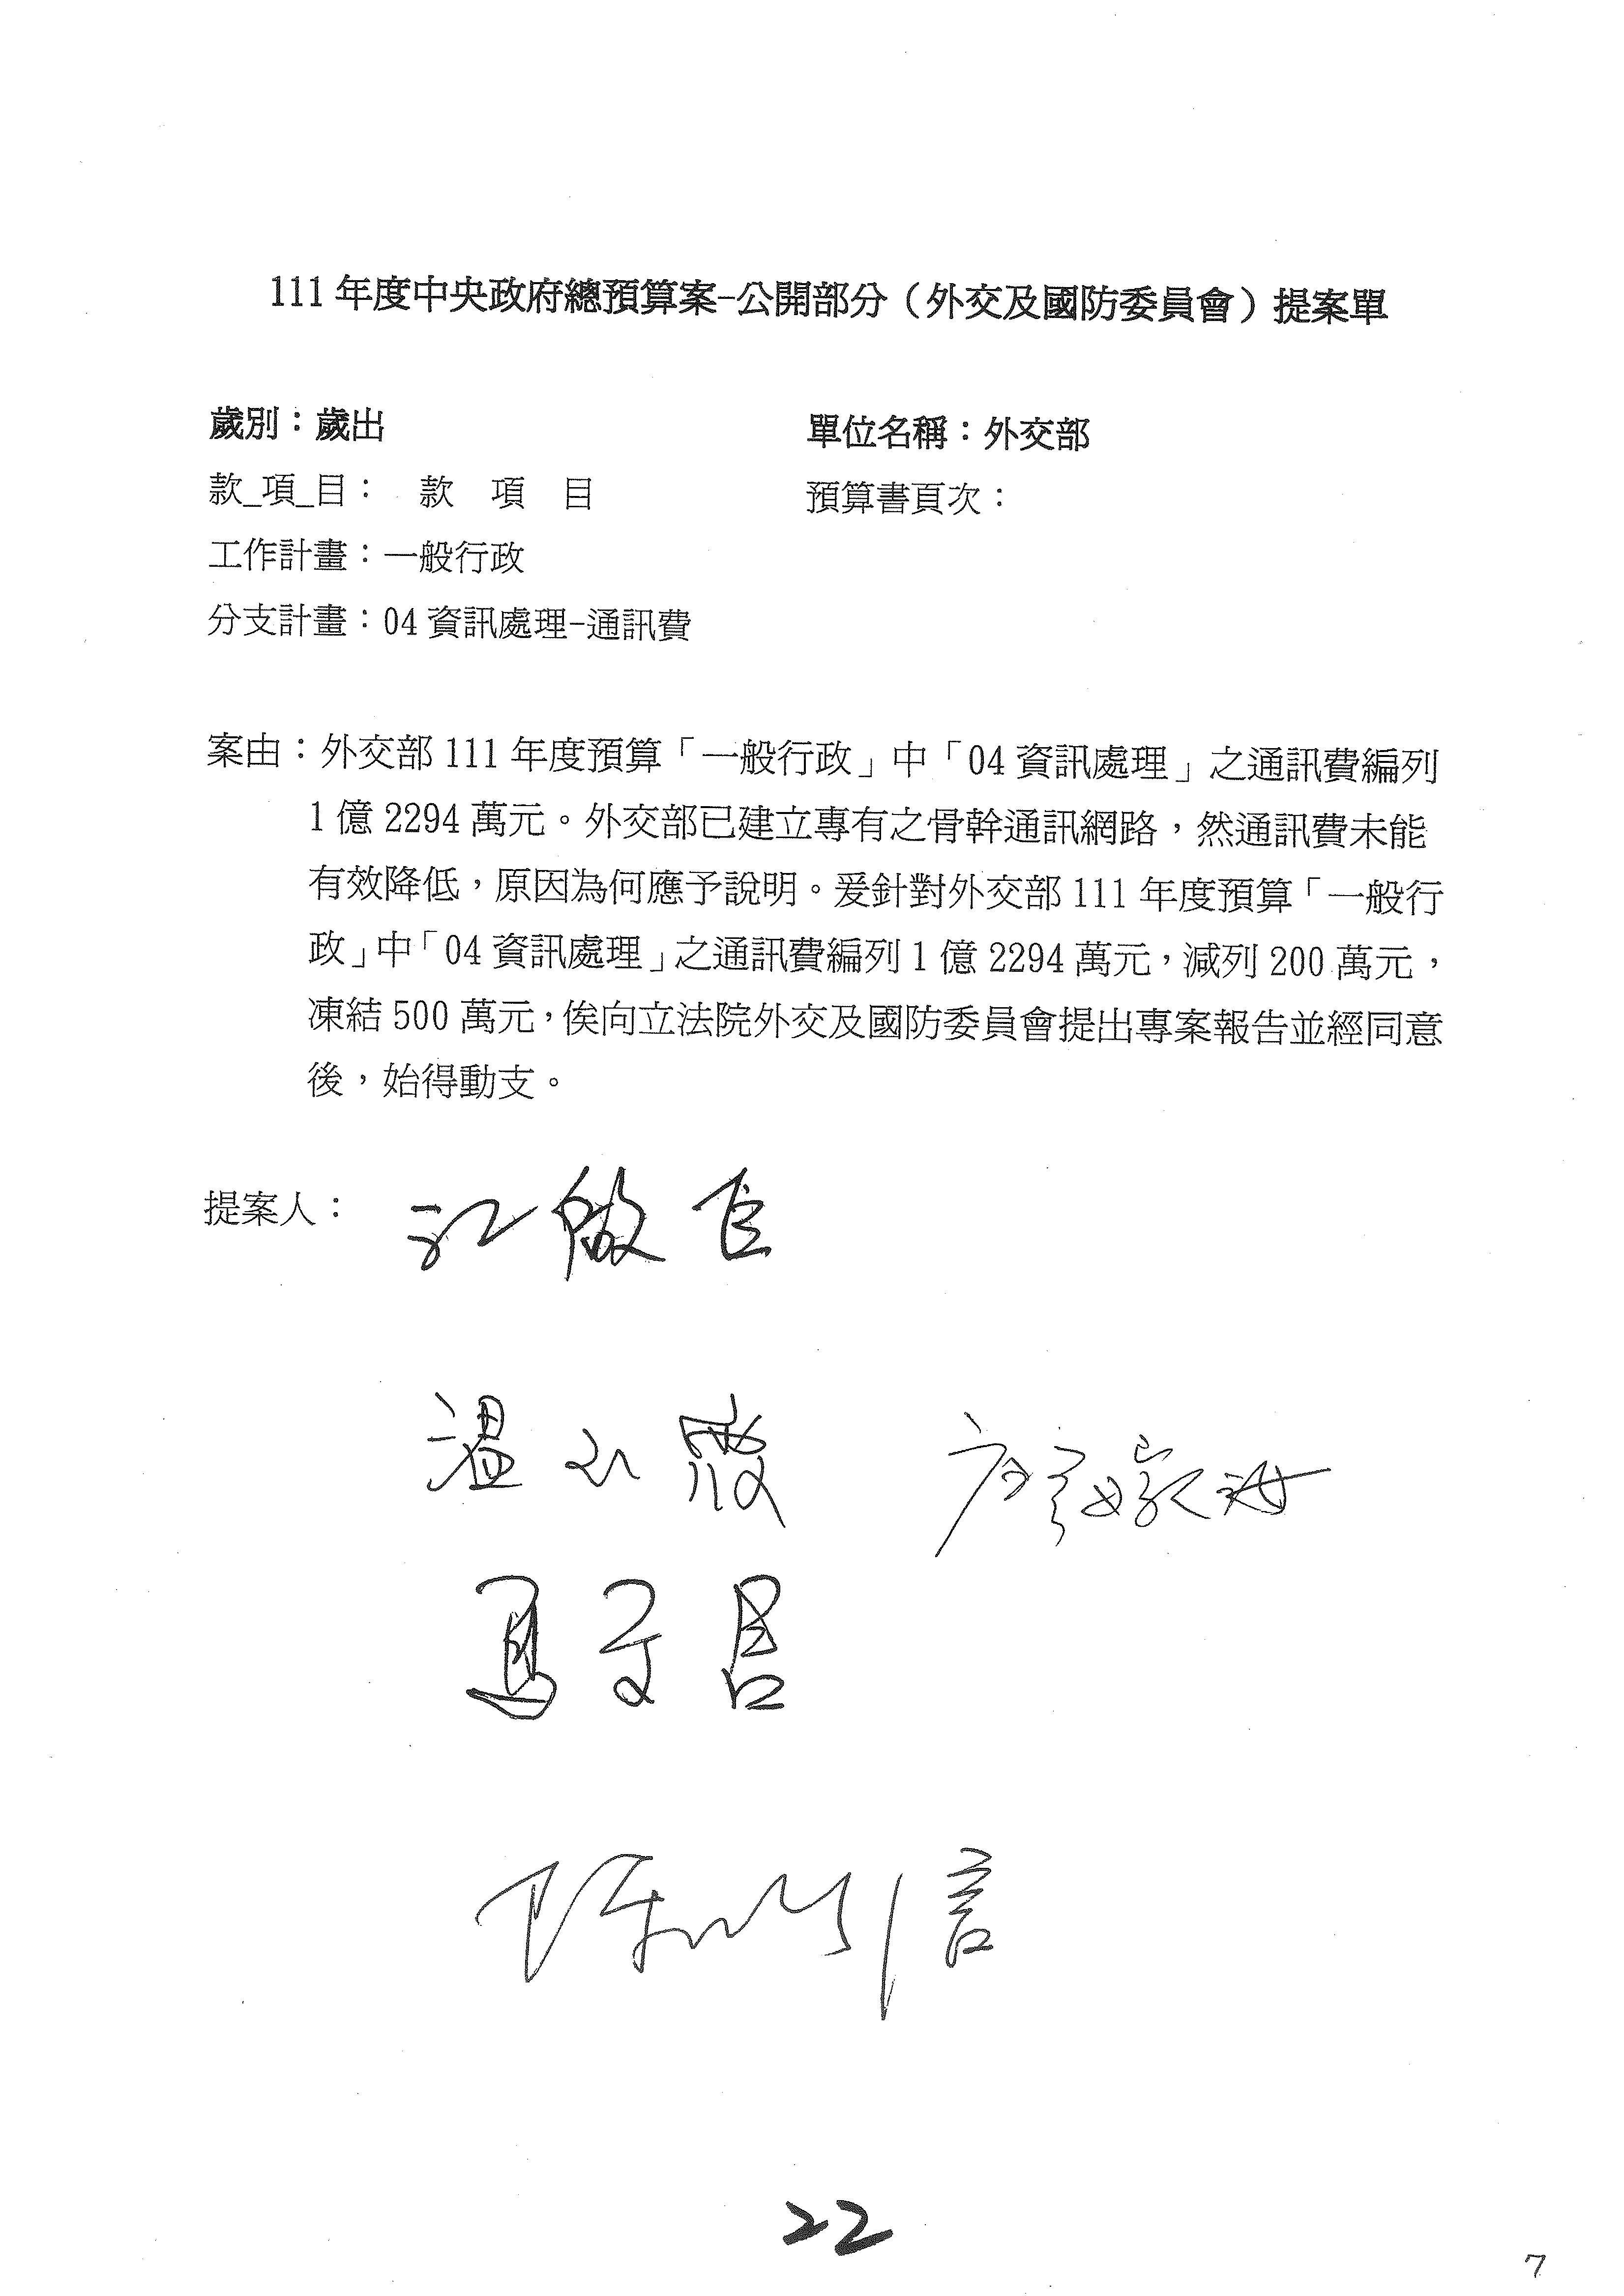 111 年度中央政府總預算案-公開部分（外交及國防委員會）提案單
歲別：歲出 單位名稱：外交部
款_項_目： 款 項 目 預算書頁次：
工作計畫：一般行政
分支計畫：04 資訊處理-通訊費
案由：外交部 111 年度預算「一般行政」中「04 資訊處理」之通訊費編列
1 億 2294 萬元。外交部已建立專有之骨幹通訊網路，然通訊費未能
有效降低，原因為何應予說明。爰針對外交部 111 年度預算「一般行
政」中「04 資訊處理」之通訊費編列 1 億 2294 萬元，減列 200 萬元，
凍結 500 萬元，俟向立法院外交及國防委員會提出專案報告並經同意
後，始得動支。
提案人： 江啟臣
溫玉霞 廖婉汝
馬文君
陳以信
22
7